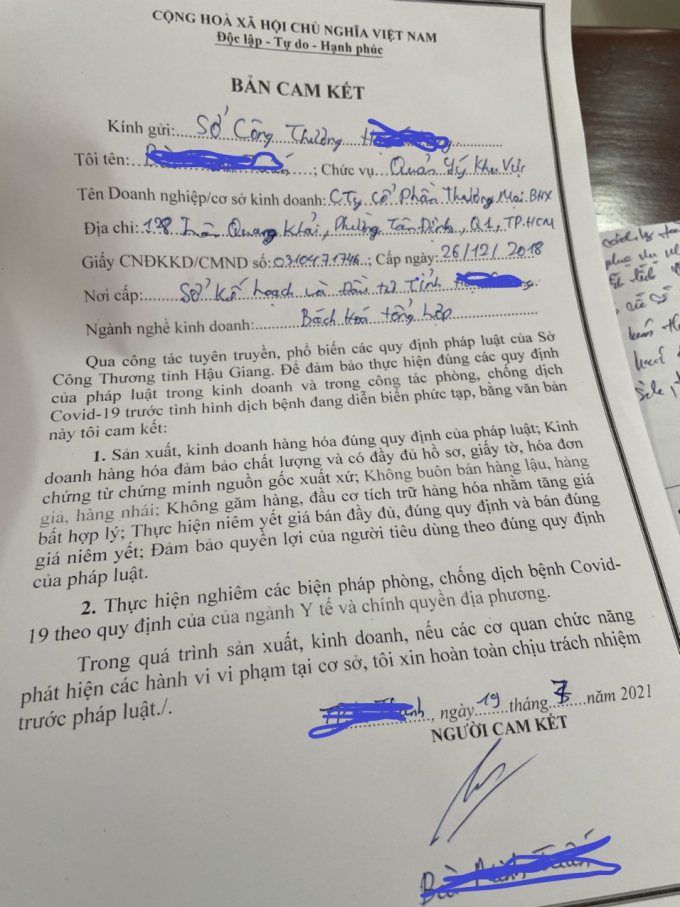 CỘNG HOÀ XÃ HỘI CHỦ NGHĨA VIỆT NAM
Độc lập - Tự do - Hạnh phúc
BẢN CAM KẾT
Kính gửi: Sở Công Thương
Tôi tên: ; Chức vụ Quản lý Khu Vực
Tên Doanh nghiệp/cơ sở kinh doanh: CTy Cổ Phần Thương Mại BHX
Địa chỉ: 128 Trần Quang Khải, Phường Tân Định, Q1, TP.HCM
Giấy CNĐKKD/CMND số: 0310471746 ; Cấp ngày: 26/12/2018
Nơi cấp: Sở Kế hoạch và Đầu tư Tỉnh
Ngành nghề kinh doanh: Bách hoá tổng hợp
Qua công tác tuyên truyền, phổ biến các quy định pháp luật của Sở
Công Thương tỉnh Hậu Giang. Để đảm bảo thực hiện đúng các quy định
của pháp luật trong kinh doanh và trong công tác phòng, chống dịch
Covid-19 trước tình hình dịch bệnh đang diễn biến phức tạp, bằng văn bản
này tôi cam kết:
1. Sản xuất, kinh doanh hàng hóa đúng quy định của pháp luật; Kinh
doanh hàng hóa đảm bảo chất lượng và có đầy đủ hồ sơ, giấy tờ, hóa đơn
chứng từ chứng minh nguồn gốc xuất xứ; Không buôn bán hàng lậu, hàng
giả, hàng nhái; Không găm hàng, đầu cơ tích trữ hàng hóa nhằm tăng giá
bất hợp lý; Thực hiện niêm yết giá bán đầy đủ, đúng quy định và bán đúng
giá niêm yết; Đảm bảo quyền lợi của người tiêu dùng theo đúng quy định
của pháp luật.
2. Thực hiện nghiêm các biện pháp phòng, chống dịch bệnh Covid-
19 theo quy định của của ngành Y tế và chính quyền địa phương.
Trong quá trình sản xuất, kinh doanh, nếu các cơ quan chức năng
phát hiện các hành vi vi phạm tại cơ sở, tôi xin hoàn toàn chịu trách nhiệm
trước pháp luật./.
, ngày 19 tháng 7 năm 2021
NGƯỜI CAM KẾT